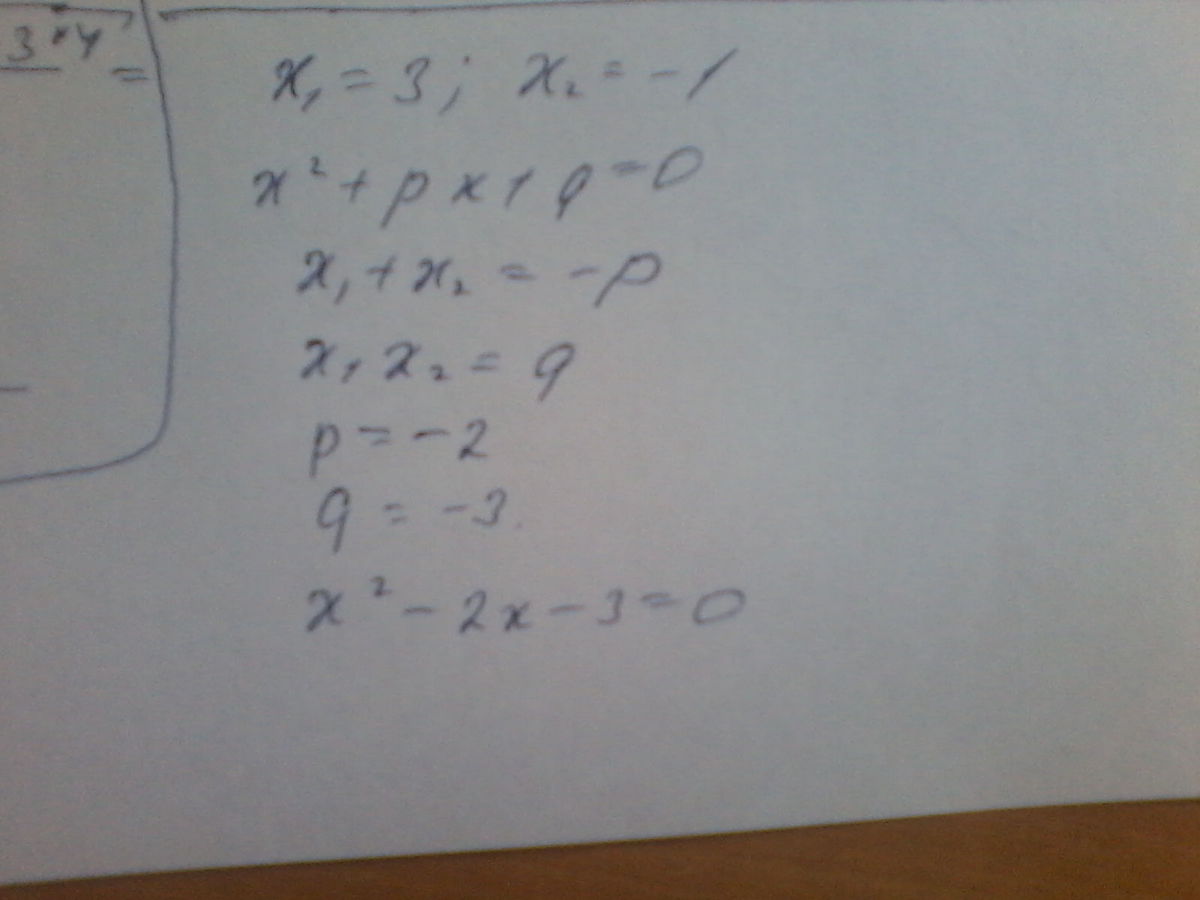 x₁ = 3; x₂ = -1
x² + px + q = 0
x₁ + x₂ = -p
x₁ x₂ = q
p = -2
q = -3.
x² - 2x - 3 = 0